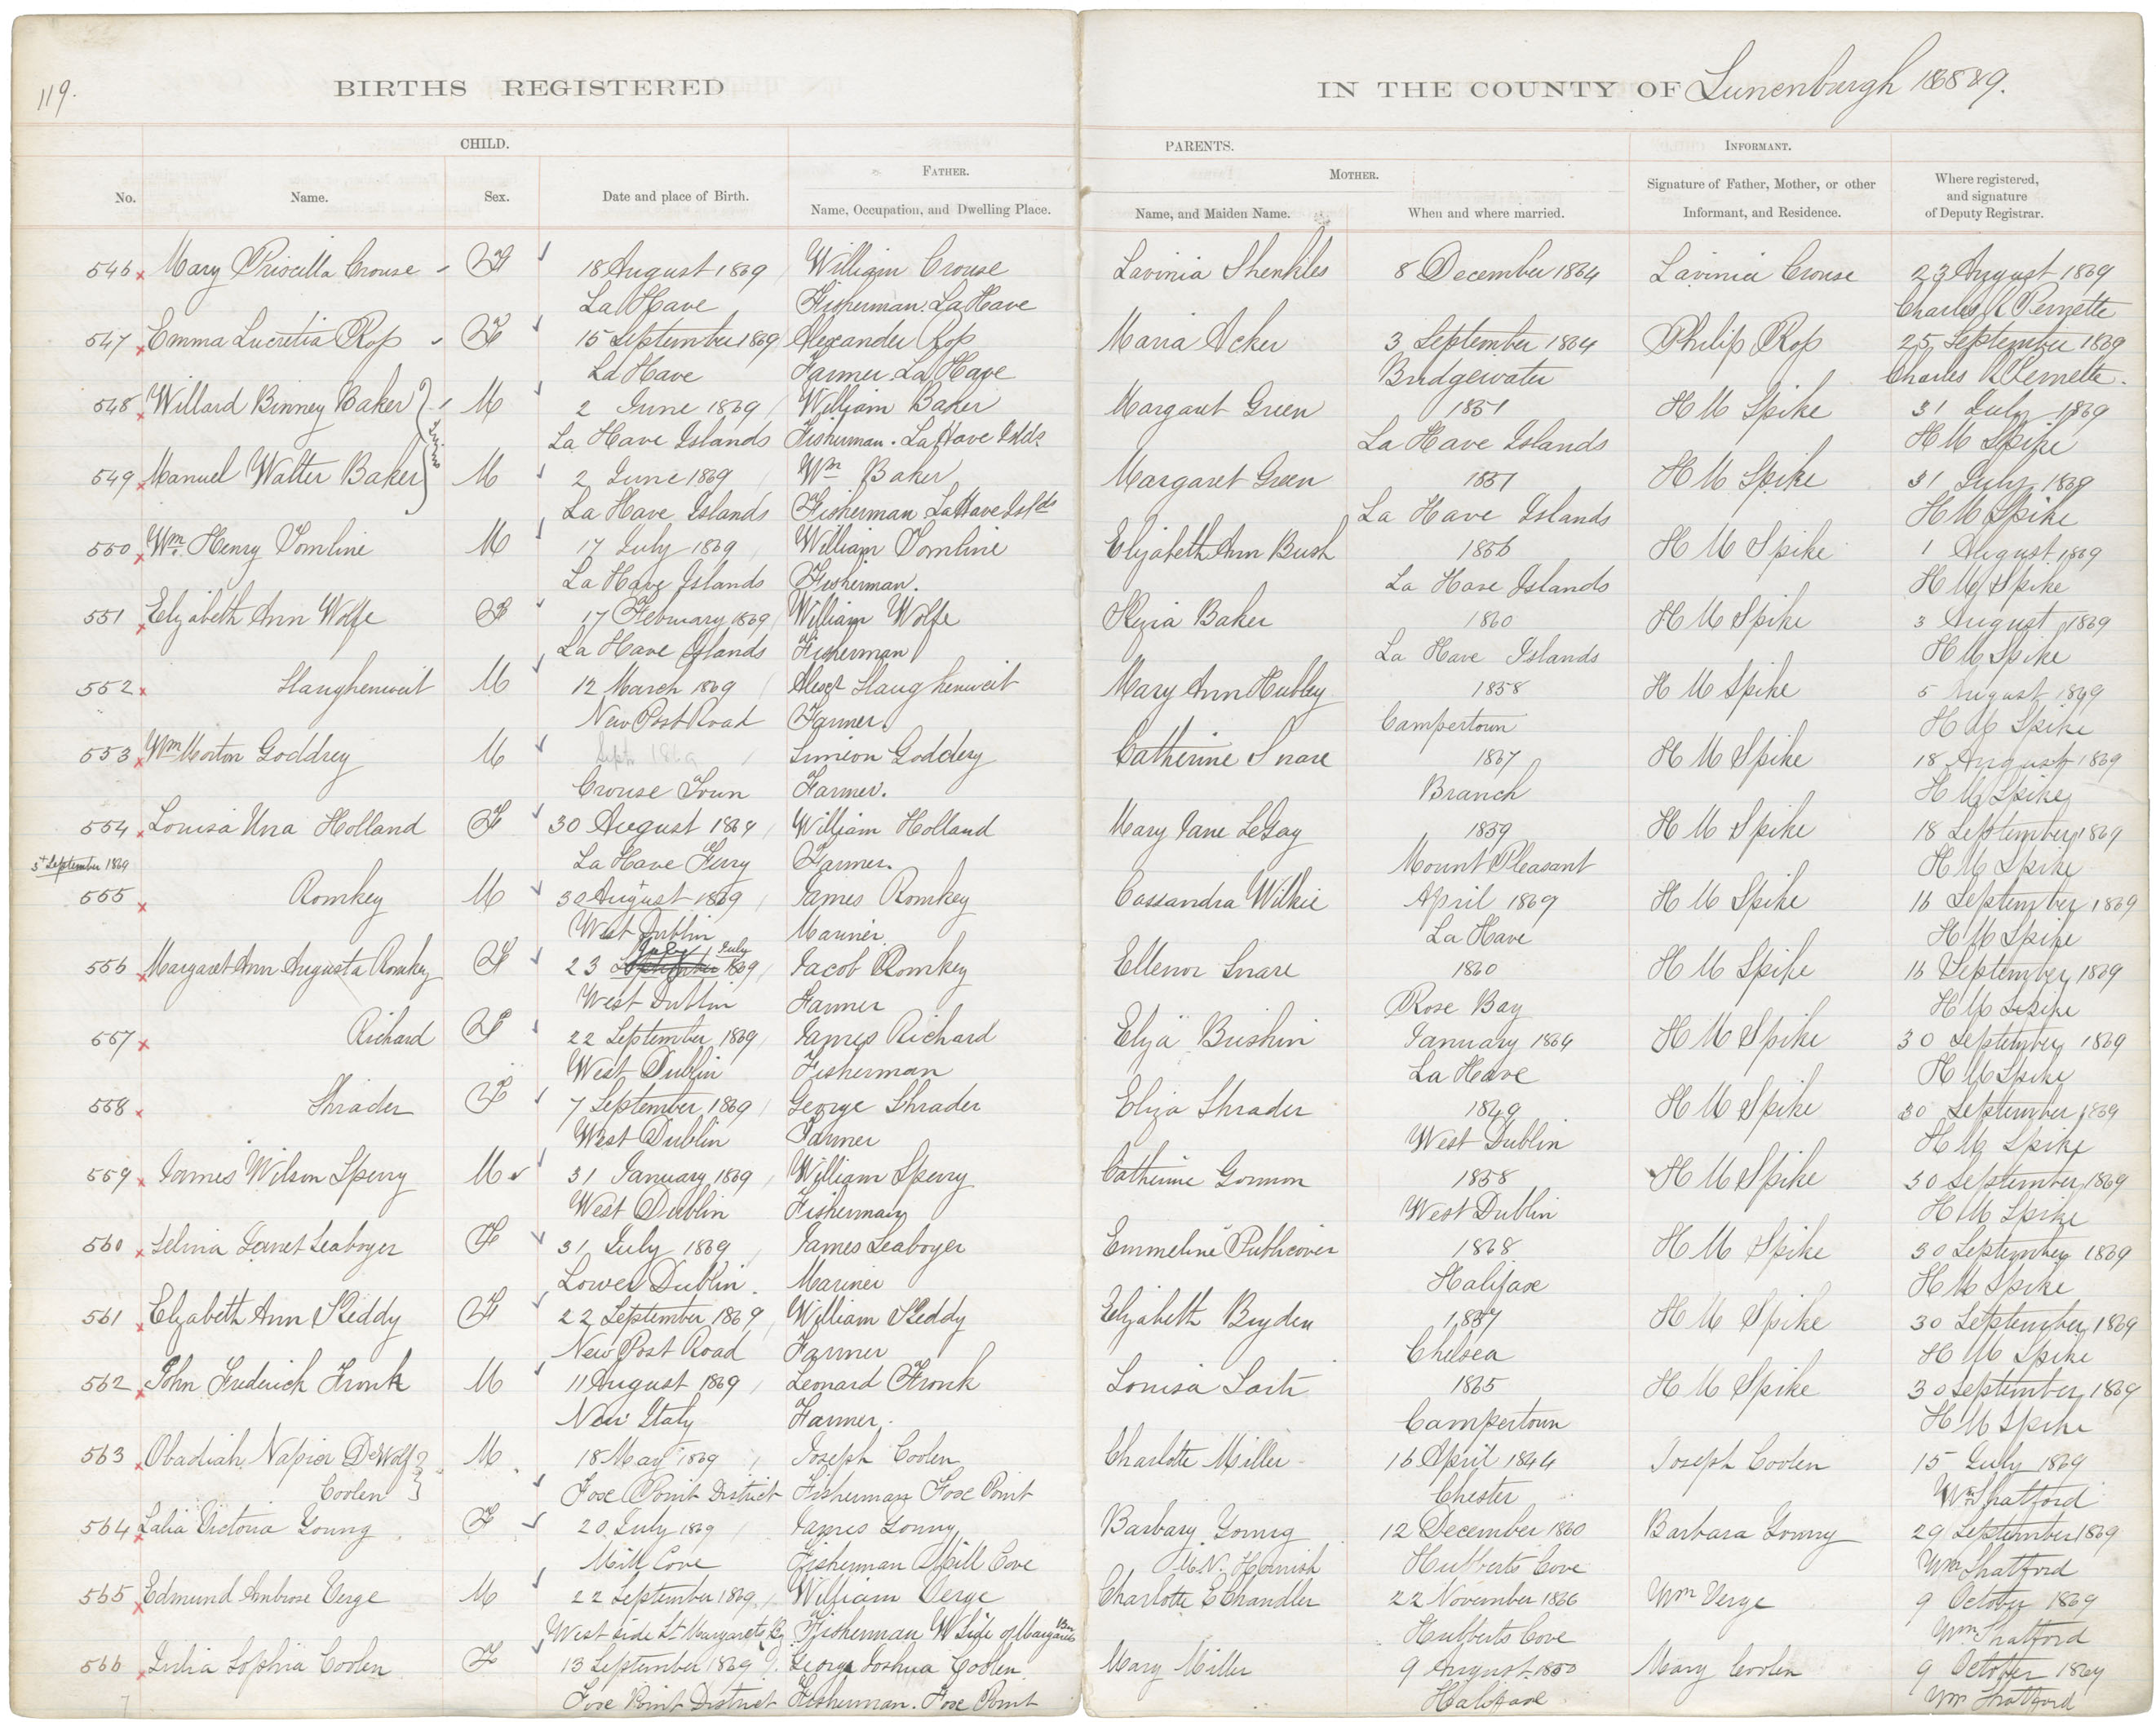 119.
BIRTHS REGISTERED IN THE COUNTY OF Lunenburgh 1868 & 9.
CHILD. PARENTS. INFORMANT.
FATHER. MOTHER.
No. Name. Sex. Date and place of Birth. Name, Occupation, and Dwelling Place. Name, and Maiden Name. When and where married. Signature of Father, Mother, or other Informant, and Residence. Where registered, and signature of Deputy Registrar.
546 Mary Priscilla Crouse F 18 August 1869 William Crouse Lavinia Shenkles 8 December 1864 Lavinia Crouse 23 August 1869
La Have Fisherman. La Have Charles R Pernette
547 Emma Lucretia Rop F 15 September 1869 Alexander Rop Maria Acker 3 September 1864 Philip Rop 25 September 1869
La Have Farmer La Have Bridgewater Charles R Pernette.
548 Willard Binney Baker } Twins M 2 June 1869 William Baker Margaret Green 1851 H M Spike 31 July 1869
La Have Islands Fisherman. La Have Islds La Have Islands H M Spike
549 Manuel Walter Baker } M 2 June 1869 Wm Baker Margaret Green 1851 H M Spike 31 July 1869
La Have Islands Fisherman La Have Islds La Have Islands H M Spike
550 Wm. Henry Tomline M 17 July 1869 William Tomline Elizabeth Ann Bush 1856 H M Spike 1 August 1869
La Have Islands Fisherman. La Have Islands H M Spike
551 Elizabeth Ann Wolfe F 17 February 1869 William Wolfe Kezia Baker 1860 H M Spike 3 August 1869
La Have Islands Fisherman La Have Islands H M Spike
552 Slaughenweit M 12 March 1869 Alexr Slaughenweit Mary Ann Hubley 1858 H M Spike 5 August 1869
New Post Road Farmer. Campertown H M Spike
553 Wm Morton Goddrey M Sept 1869 Simeon Goddery Catherine Snare 1867 H M Spike 18 August 1869
Crouse Town Farmer. Branch H M Spike
554 Louisa Una Holland F 30 August 1869 William Holland Mary Jane LeGay 1859 H M Spike 18 September 1869
La Have Ferry Farmer. Mount Pleasant H M Spike
5th September 1869
555 Romkey M 30 August 1869 James Romkey Cassandra Wilkie April 1869 H M Spike 16 September 1869
West Dublin Mariner La Have H M Spike
July
556 Margaret Ann Augusta Romkey F 23 September 1869 Jacob Romkey Ellenor Snare 1860 H M Spike 16 September 1869
West Dublin Farmer Rose Bay H M Spike
557 Richard F 22 September 1869 James Richard Eliza Bushin January 1864 H M Spike 30 September 1869
West Dublin Fisherman La Have H M Spike
558 Shrader F 7 September 1869 George Shrader Eliza Shrader 1849 H M Spike 30 September 1869
West Dublin Farmer West Dublin H M Spike
559 James Wilson Sperry M 31 January 1869 William Sperry Catherine Gormon 1858 H M Spike 30 September 1869
West Dublin Fisherman West Dublin H M Spike
560 Selvia Janet Seaboyer F 31 July 1869 James Seaboyer Emmeline Publicover 1868 H M Spike 30 September 1869
Lower Dublin. Mariner Halifax H M Spike
561 Elizabeth Ann Keddy F 22 September 1869 William Keddy Elizabeth Bryden 1857 H M Spike 30 September 1869
New Post Road Farmer Chelsea H M Spike
562 John Frederich Fronk M 11 August 1869 Leonard Fronk Louisa 1865 H M Spike 30 September 1869
New Italy Farmer. Campertown H M Spike
563 Obadiah Napier DeWolf } M 18 May 1869 Joseph Coolen Charlotte Miller 16 April 1844 Joseph Coolen 15 July 1869
Coolen } Fox Point District Fisherman Fox Point Chester Wm Shatford
564 Lalia Victoria Young F 20 July 1869 James Young Barbary Young 12 December 1860 Barbara Young 29 September 1869
Mill Cove Fisherman Mill Cove M.N. Harnish Hubberts Cove Wm Shatford
565 Edmund Ambrose Verge M 22 September 1869 William Verge Charlotte E Chandler 22 November 1866 Wm Verge 9 October 1869
West side St Margarets Bay Fisherman W Side of Margarets Bay Hubberts Cove Wm Shatford
566 Julia Sophia Coolen F 13 September 1869 George Joshua Coolen Mary Miller 9 August 1850 Mary Coolen 9 October 1869
Fox Point District Fisherman. Fox Point Halifax Wm Shatford